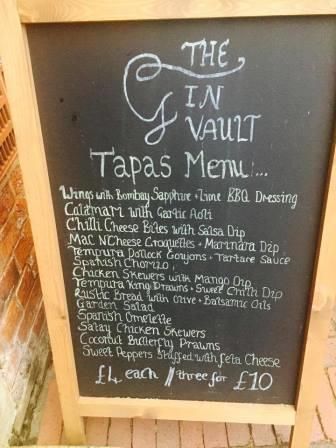 THE
GIN
VAULT
Tapas Menu...
Wings with Bombay Sapphire + Lime BBQ Dressing
Calamari with Garlic Aoli
Chilli Cheese Bites with Salsa Dip
Mac N Cheese Croquettes + Marinara Dip
Tempura Pollock Goujons + Tartare Sauce
Spanish Chorizo
Chicken Skewers with Mango Dip
Tempura King Prawns + Sweet Chilli Dip
Rustic Bread with Olive + Balsamic Oils
Garden Salad
Spanish Omelette
Satay Chicken Skewers
Coconut Butterfly Prawns
Sweet Peppers Stuffed with Feta Cheese
£4 each // three for £10